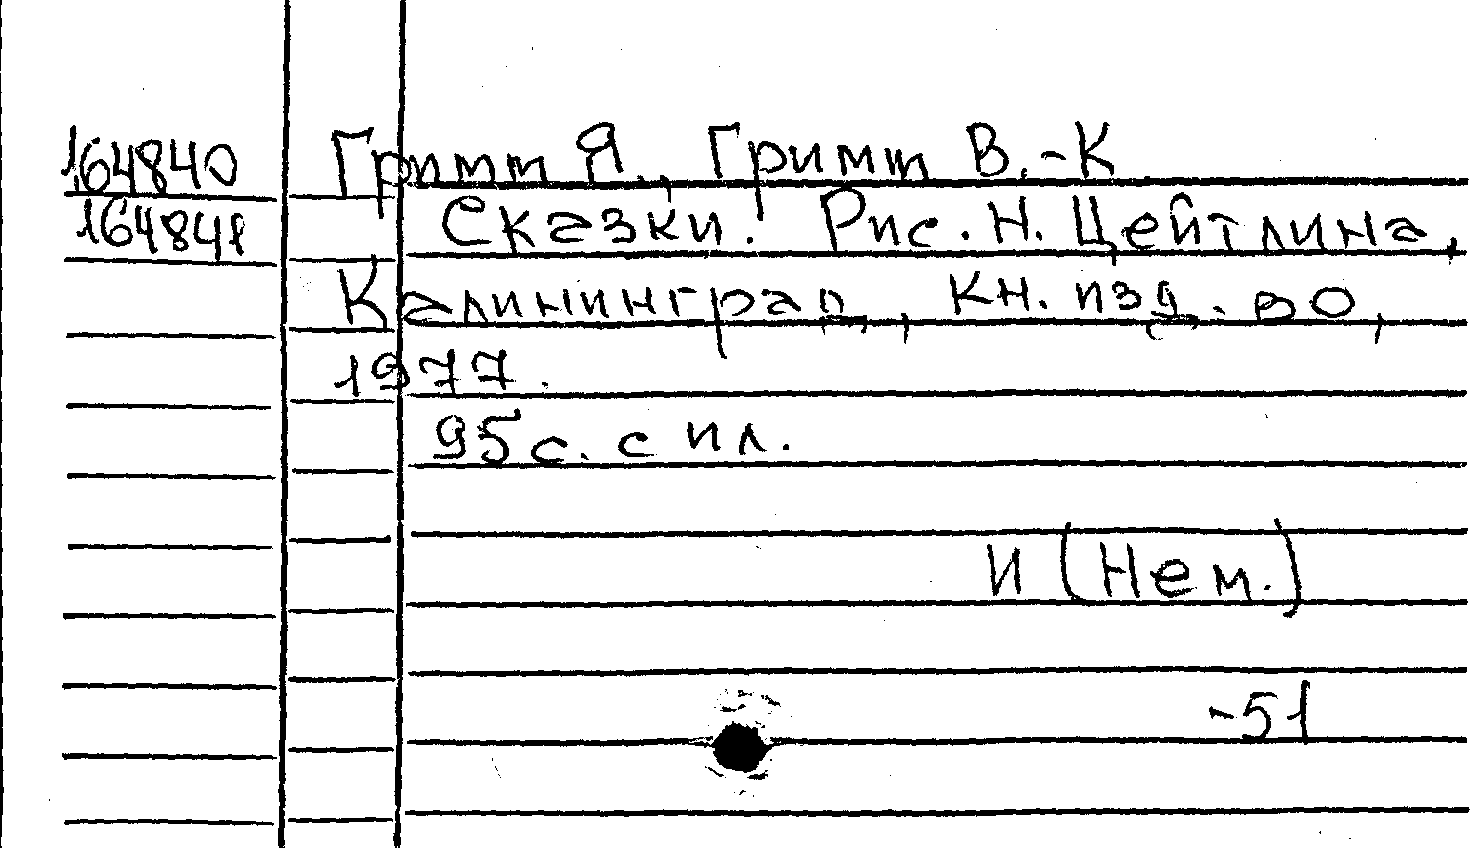 164840 Гримм Я., Гримм В.-К.
164841 Сказки. Рис. Н. Цейтлина.
Калининград, кн. изд-во,
1977.
95 с. с ил.
И (Нем.)
-51